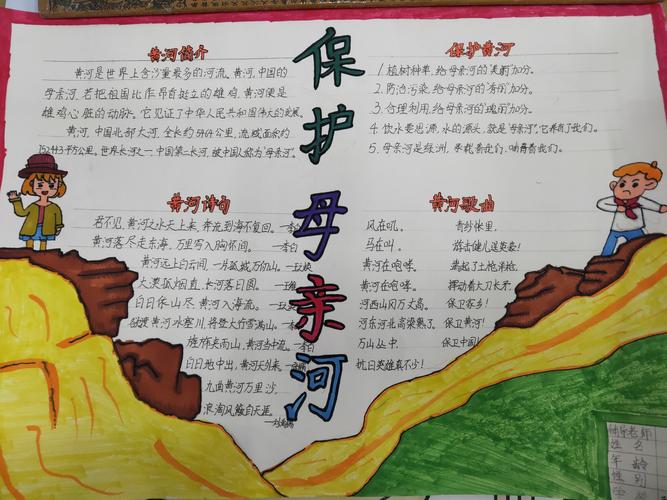 保护母亲河
黄河简介
黄河是世界上含沙量最多的河流。黄河,中国的
母亲河,若把祖国比作昂首挺立的雄鸡,黄河便是
雄鸡心脏的动脉。它见证了中华人民共和国伟大的发展。
黄河,中国北部大河,全长约5464公里,流域面积约
752443平方公里。世界长河之一,中国第二长河,被中国人称为"母亲河"。
保护黄河
1.植树种草,给母亲河的"美丽"加分。
2.防治污染,给母亲河的"秀丽"加分。
3.合理利用,给母亲河的"瑰丽"加分。
4.饮水要思源,水的源头,就是"母亲河",它养育了我们。
5.母亲河是绿洲,承载着我们,哺育着我们。
黄河诗句
君不见,黄河之水天上来,奔流到海不复回。—李白
黄河落尽走东海,万里写入胸怀间。—李白
黄河远上白云间,一片孤城万仞山。—王之涣
大漠孤烟直,长河落日圆。—王维
白日依山尽,黄河入海流。—王之涣
欲渡黄河冰塞川,将登太行雪满山。—李白
旌旗夹两山,黄河当中流。
白日地中出,黄河天外来。
九曲黄河万里沙,
浪淘风簸自天涯。
—刘禹锡
黄河歌曲
风在吼。 青纱帐里。
马在叫。 游击健儿逞英豪!
黄河在咆哮。 端起了土枪洋枪。
黄河在咆哮。 挥动着大刀长矛。
河西山冈万丈高。 保卫家乡!
河东河北高粱熟了。 保卫黄河!
万山丛中。 保卫中国!
抗日英雄真不少!
指导老师
姓名
年龄
性别